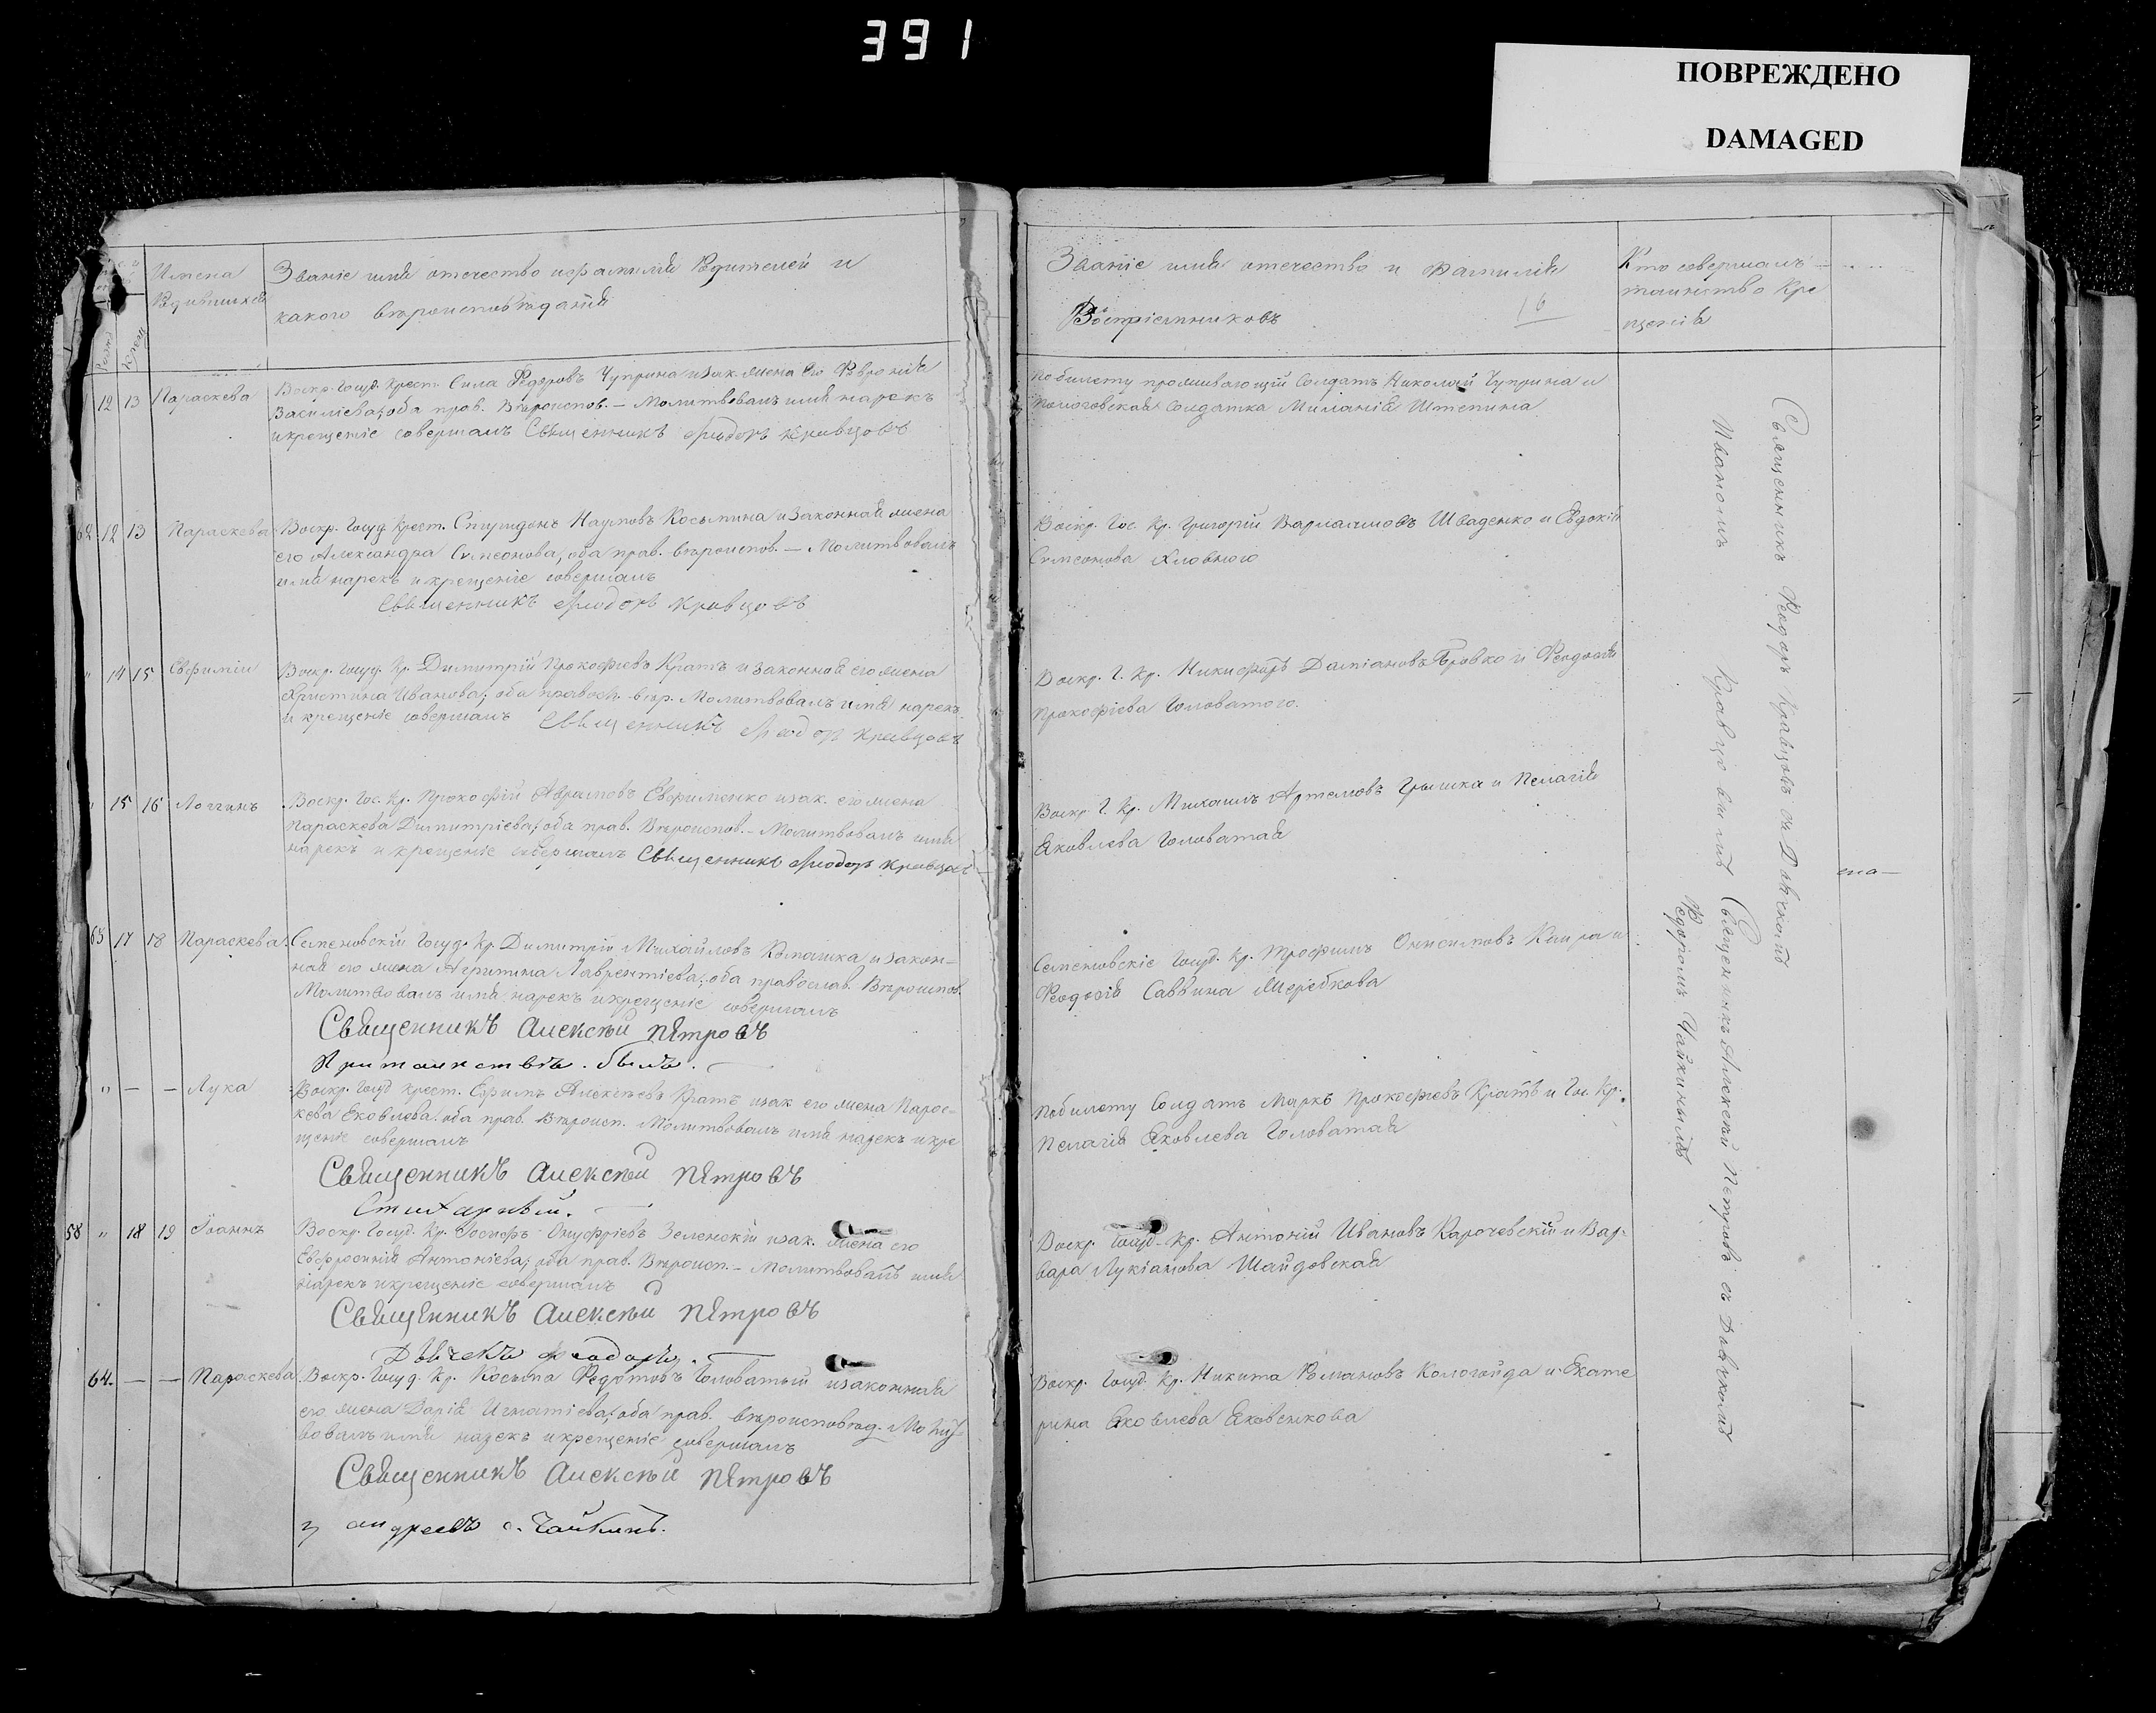 391
ПОВРЕЖДЕНО
DAMAGED
Имена
Родившихся
Званіе имя отечество и фамилія Родителей и
какого вѣроисповѣданія
Званіе имя отечество и фамилія
Воспріемниковъ
16
Кто совершалъ
таинство Кре
щенія
12 13 Параскева
Воскр. Госуд. Крест. Сила Федоровъ Чуприна и зак. жена его Февронія
Васильева; оба прав. Вѣроиспов. — Молитвовалъ имя нарекъ
и крещеніе совершалъ Священникъ Ѳеодоръ Кравцовъ
По билету проживающій Солдатъ Николай Чуприна и
Солдатка Миланія Штепина
62 12 13 Параскева
Воскр. Госуд. Крест. Спиридонъ Наумовъ Косьмина и законная жена
его Александра Симеонова, оба прав. вѣроиспов. — Молитвовалъ
имя нарекъ и крещеніе совершалъ
Священникъ Ѳеодоръ Кравцовъ
Воскр. Гос. Кр. Григорій Варлаамовъ Шваденко и Евдокія
Симеонова
" 14 15 Евфимій
Воскр. Госуд. Кр. Димитрій Прокофіевъ Кратъ и законная его жена
Христина Иванова; оба правосл. вѣр. Молитвовалъ имя нарекъ
и крещеніе совершалъ Священникъ Ѳеодоръ Кравцовъ
Воскр. Г. Кр. Никифоръ Даміановъ Бровко и Феодосія
Прокофіева Головатого.
" 15 16 Логгинъ
Воскр. Гос. Кр. Прокофій Аврамовъ Евфименко и зак. его жена
Параскева Димитріева; оба прав. Вѣроиспов. — Молитвовалъ имя
нарекъ и крещеніе совершалъ Священникъ Ѳеодоръ Кравцовъ
Воскр. Г. Кр. Михаилъ Артемовъ Гришка и Пелагія
Яковлева Головатая
63 17 18 Параскева
Семеновскій Госуд. Кр. Димитрій Михайловъ и закон=
ная его жена Агрипина Лаврентіева; оба православ. Вѣроиспов.
Молитвовалъ имя нарекъ и крещеніе совершалъ
Священникъ Алексѣй Пѣтровъ
При таинствѣ былъ.
Семеновскіе Госуд. Кр. Трофимъ Онисимовъ Каира и
Феодосія Саввина Жеребкова
" — — Лука
Воскр. Госуд. Крест. Ефимъ Алексѣевъ Кратъ и зак. его жена Парас=
кева Яковлева. оба прав. Вѣроисп. Молитвовалъ имя нарекъ и кре
щеніе совершалъ
Священникъ Алексѣй Пѣтровъ
Стихарный.
По билету Солдатъ Маркъ Прокофіевъ Кратъ и Гос. Кр.
Пелагія Яковлева Головатая
58 " 18 19 Іоаннъ
Воскр. Госуд. Кр. Іосифъ Онуфріевъ Зеленскій и зак. жена его
Евфросинія Антоніева; оба прав. Вѣроисп. — Молитвовалъ имя
нарекъ и крещеніе совершалъ
Священникъ Алексѣй Пѣтровъ
Дьячекъ Феодоръ.
Воскр. Госуд. Кр. Антоній Ивановъ Карочевскій и Вар-
вара Лукіанова Шайдовская
64. — — Параскева
Воскр. Госуд. Кр. Косьма Федотовъ Головатый и законная
его жена Дарія Игнатіева; оба прав. вѣроисповѣд. Молит-
вовалъ имя нарекъ и крещеніе совершалъ
Священникъ Алексѣй Пѣтровъ
андреевъ с. Чайкинъ.
Воскр. Госуд. Кр. Никита Романовъ Кологойда и Екате
рина Яковлева Яковенкова
Священникъ Феодоръ Кравцовъ съ Дьячкомъ
Иваномъ Кравцовымъ
Священникъ Алексѣй Петровъ съ Дьячкомъ
Федоромъ Чайкинымъ